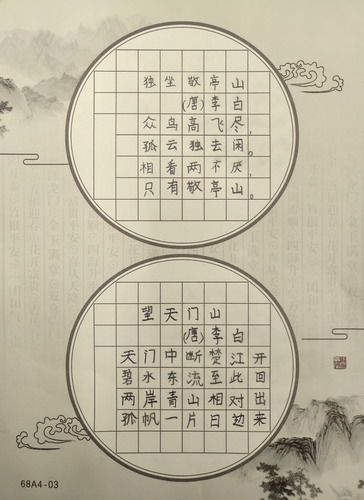 独坐敬亭山
(唐)李白
众鸟高飞尽，
孤云独去闲。
相看两不厌，
只有敬亭山。
望天门山
(唐)李白
天门中断楚江开
碧水东流至此回
两岸青山相对出
孤帆一片日边来
68A4-03